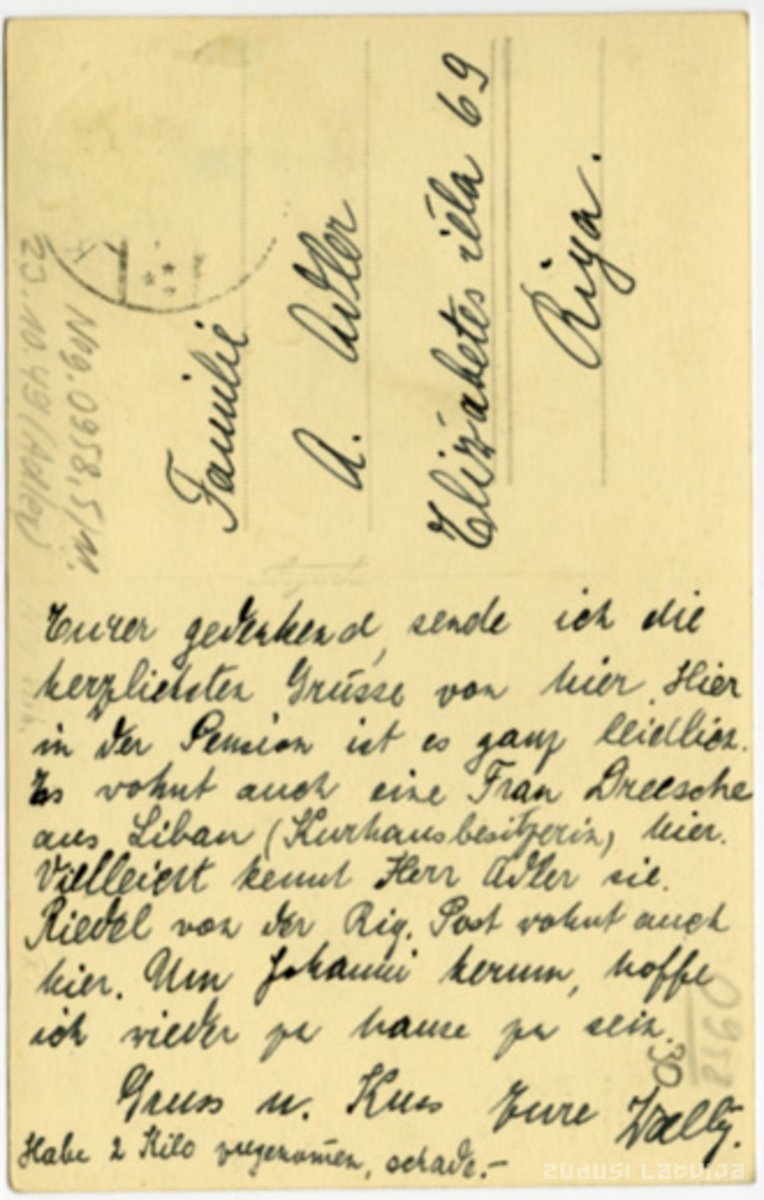 Familie
A. Adler
Elizabetes iela 69
Riga.
Neg. 0958,5/11.
23.10.49 (Adler)
Eurer gedenkend, sende ich die
herzlichsten Grüsse von hier. Hier
in der Pension ist es ganz leidlich.
Es wohnt auch eine Frau Dreesche
aus Libau (Kurhausbesitzerin) hier.
Vielleicht kennt Herr Adler sie.
Riedel von der Rig. Post wohnt auch
hier. Um Johanni herum, hoffe
ich wieder zu hause zu sein.
30
0958
Gruss u. Kuss Eure Wally.
Habe 2 Kilo zugenommen, schade.-
zudusi Latvija